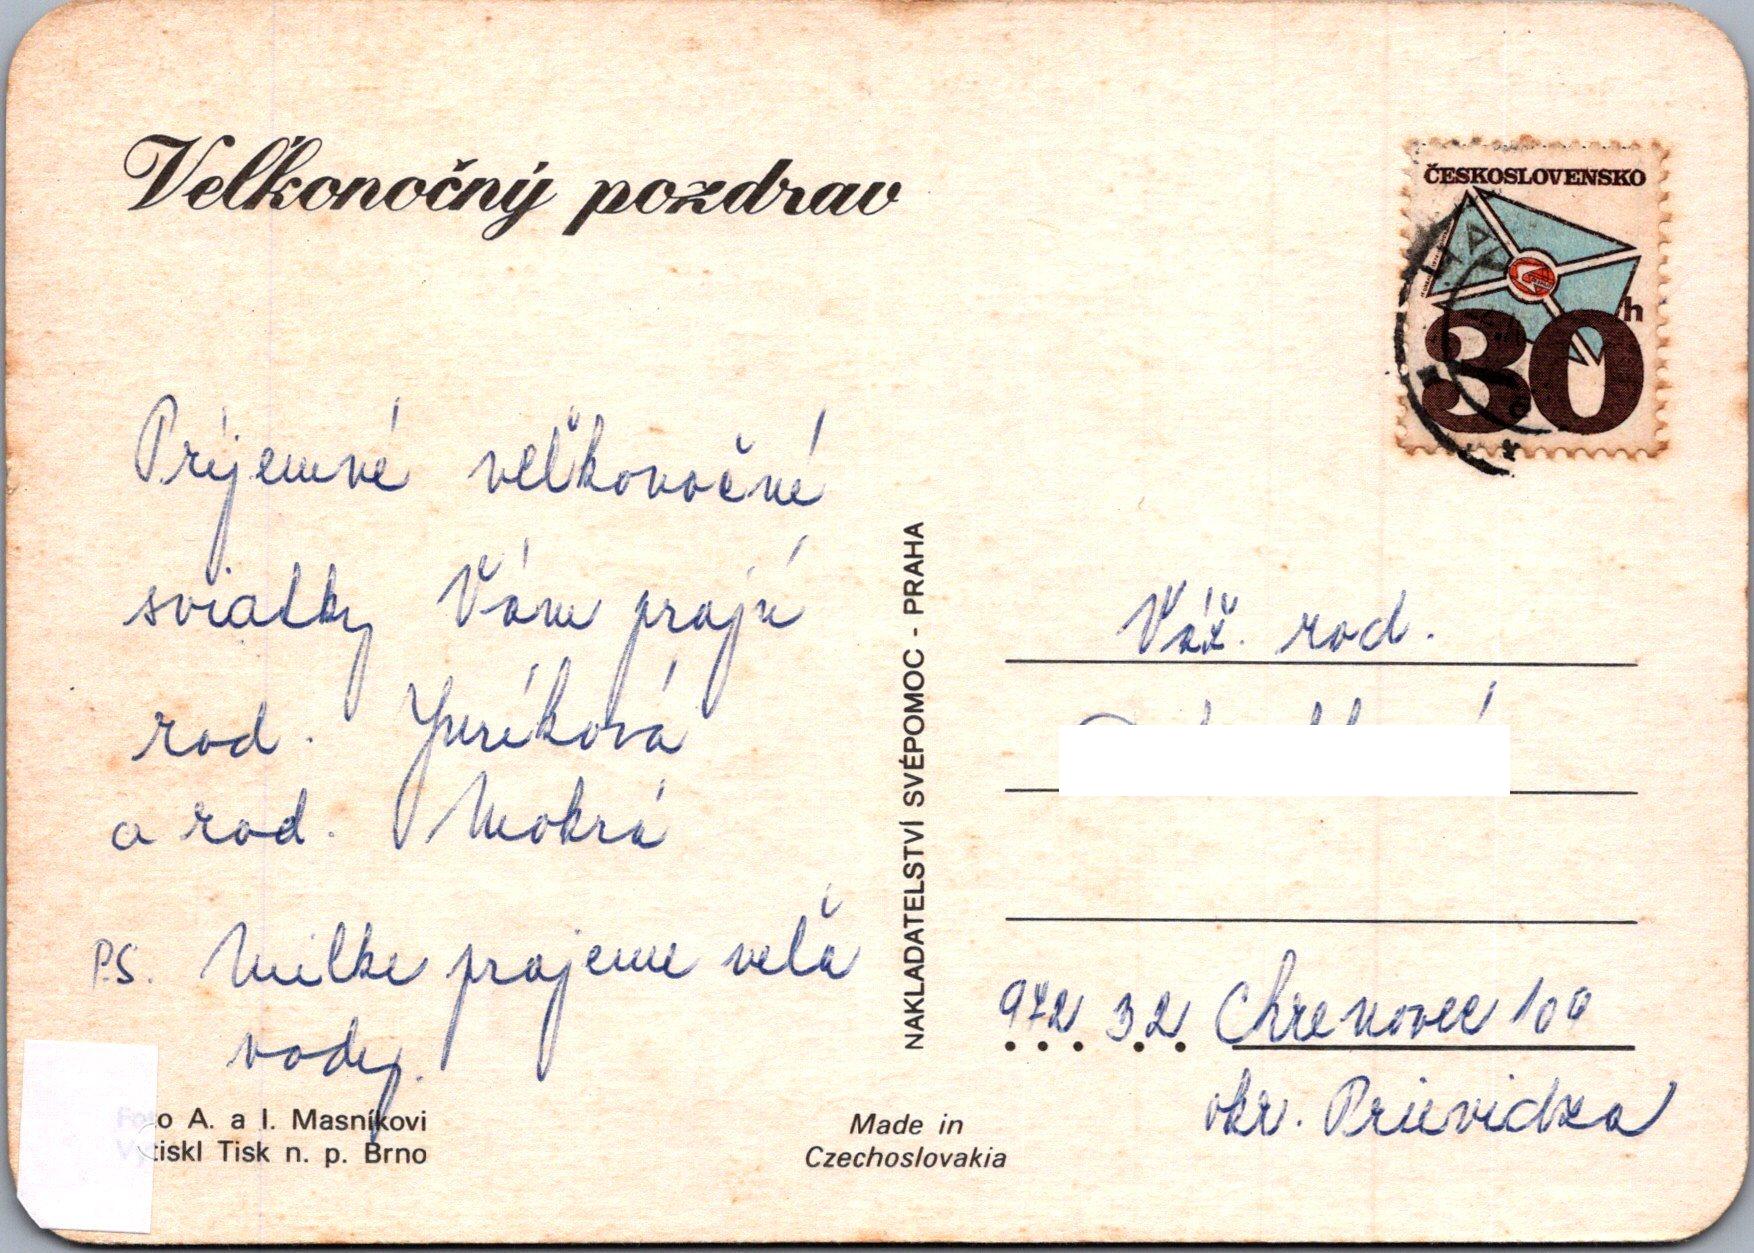 Veľkonočný pozdrav
ČESKOSLOVENSKO
30 h
Príjemné veľkonočné
sviatky Vám prajú
rod. Juríková
a rod. Mokrá
P.S. Milke prajeme veľa
vody.
Foto A. a I. Masníkovi
Vytiskl Tisk n. p. Brno
NAKLADATELSTVÍ SVÉPOMOC - PRAHA
Made in
Czechoslovakia
Váž. rod.
972 32 Chrenovec 100
okr. Prievidza